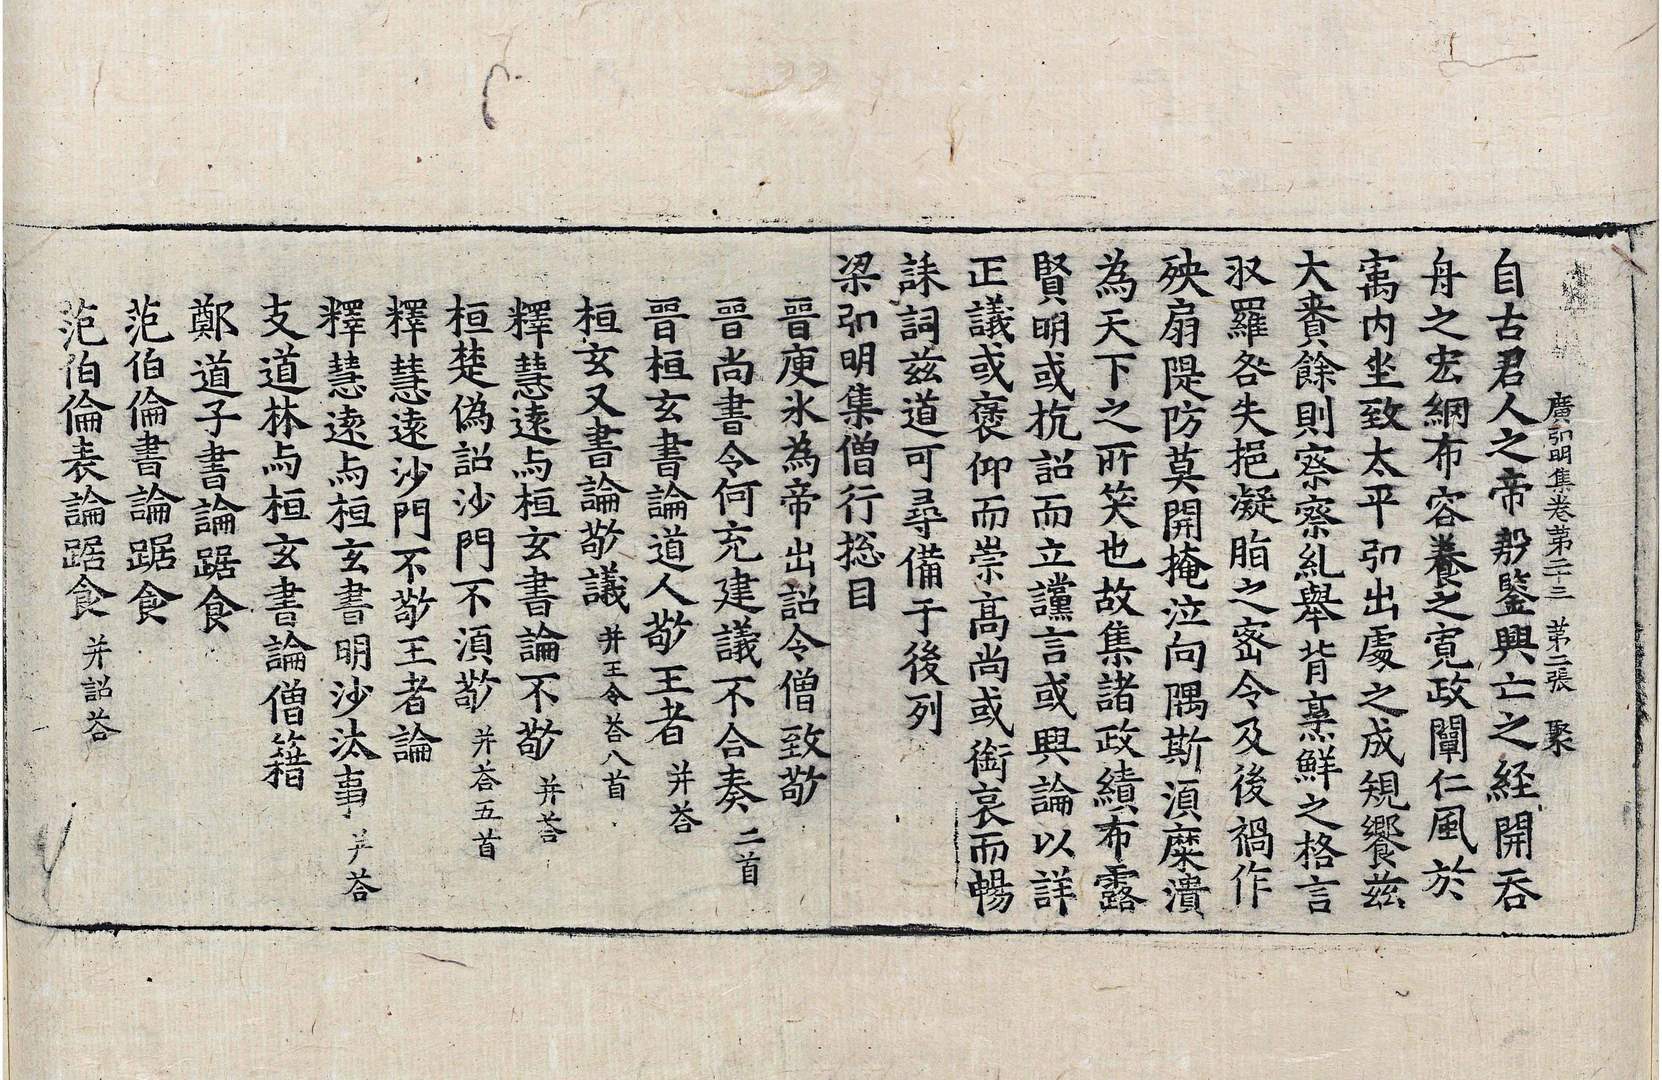 廣弘明集卷第二十三 第二張 聚
自古君人之帝殷鑒興亡之経開吞
舟之宏網布容養之寬政闡仁風於
㝢内坐致太平弘出處之成䂓饗茲
大賚餘則察察糺舉背烹鮮之格言
収羅咎失挹凝脂之密令及後禍作
殃扇隄防莫開掩泣向隅斯湏糜潰
為天下之所笑也故集諸政績布露
賢明或抗詔而立讜言或興論以詳
正議或褒仰而崇髙尚或銜哀而暢
誄詞茲道可尋備于後列
梁弘明集僧行捴目
晉庾氷為帝出詔令僧致敬
晉尚書令何充建議不合奏 二首
晉桓玄書論道人敬王者 并荅
桓玄又書論敬議 并王令荅八首
釋慧遠与桓玄書論不敬 并荅
桓楚偽詔沙門不湏敬 并荅五首
釋慧遠沙門不敬王者論
釋慧遠与桓玄書明沙汰事 并荅
支道林与桓玄書論僧籍
鄭道子書論踞食
范伯倫書論踞食
范伯倫表論踞食 并詔荅